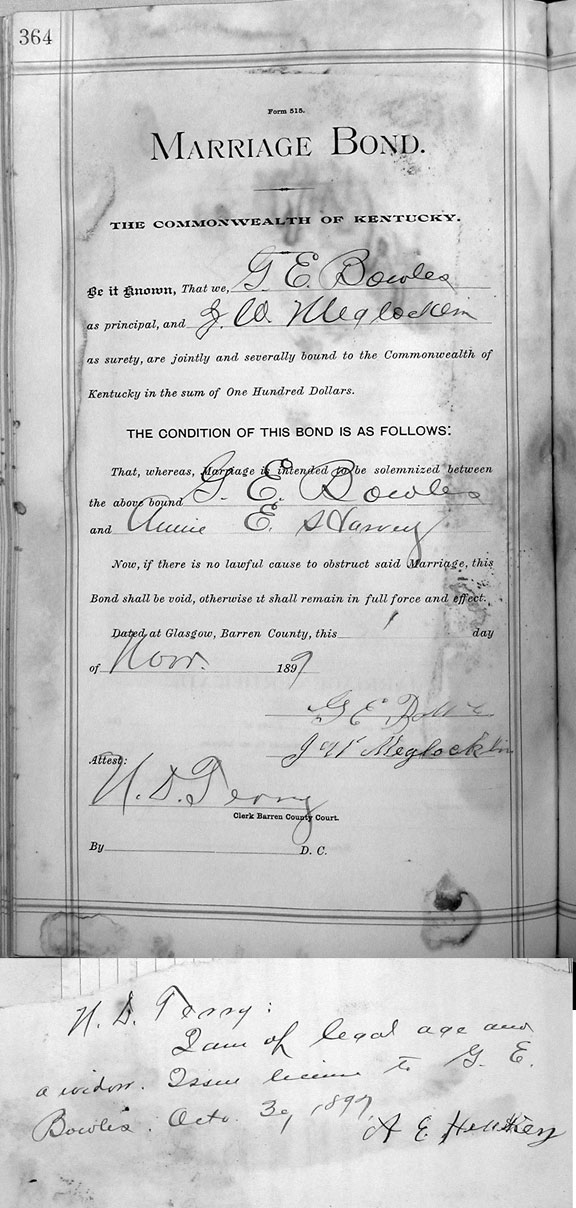 364
Form 515.
MARRIAGE BOND.
THE COMMONWEALTH OF KENTUCKY.
Be it Known, That we, G. E. Bowles
as principal, and J. W. Meglocklin
as surety, are jointly and severally bound to the Commonwealth of
Kentucky in the sum of One Hundred Dollars.
THE CONDITION OF THIS BOND IS AS FOLLOWS:
That, whereas, Marriage is intended to be solemnized between
the above bound G. E. Bowles
and Annie E.
Now, if there is no lawful cause to obstruct said Marriage, this
Bond shall be void, otherwise it shall remain in full force and effect.
Dated at Glasgow, Barren County, this 1 day
of Nov. 1897
G E
J W Meglocklin
Attest:
N. D. Terry
Clerk Barren County Court.
By D. C.
N. D. Terry:
I am of legal age and
a widow. Issue license to G. E.
Bowles. Octo. 30, 1897,
A E